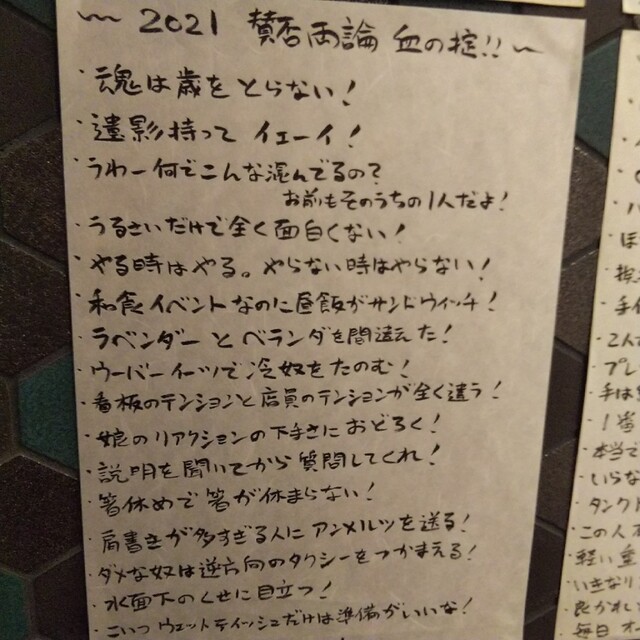 〜 2021 賛否両論 血の掟!! 〜
・魂は歳をとらない！
・遺影持って イェーイ！
・うわー何でこんな混んでるの？
お前もそのうちの1人だよ！
・うるさいだけで全く面白くない！
・やる時はやる。やらない時はやらない！
・和食イベントなのに昼飯がサンドウィッチ！
・ラベンダーとベランダを間違えた！
・ウーバーイーツで冷奴をたのむ！
・看板のテンションと店員のテンションが全く違う！
・娘のリアクションの下手さにおどろく！
・説明を聞いてから質問してくれ！
・箸休めで箸が休まらない！
・肩書きが多すぎる人にアンメルツを送る！
・ダメな奴は逆方向のタクシーをつかまえる！
・水面下のくせに目立つ！
・こいつ ウェットティッシュだけは準備がいいな！
・ほ
・手
・2人
・プレ
・手は
・1番
・本当で
・いらな
・タンク
・この人
・軽い
・いきなり
・毎日